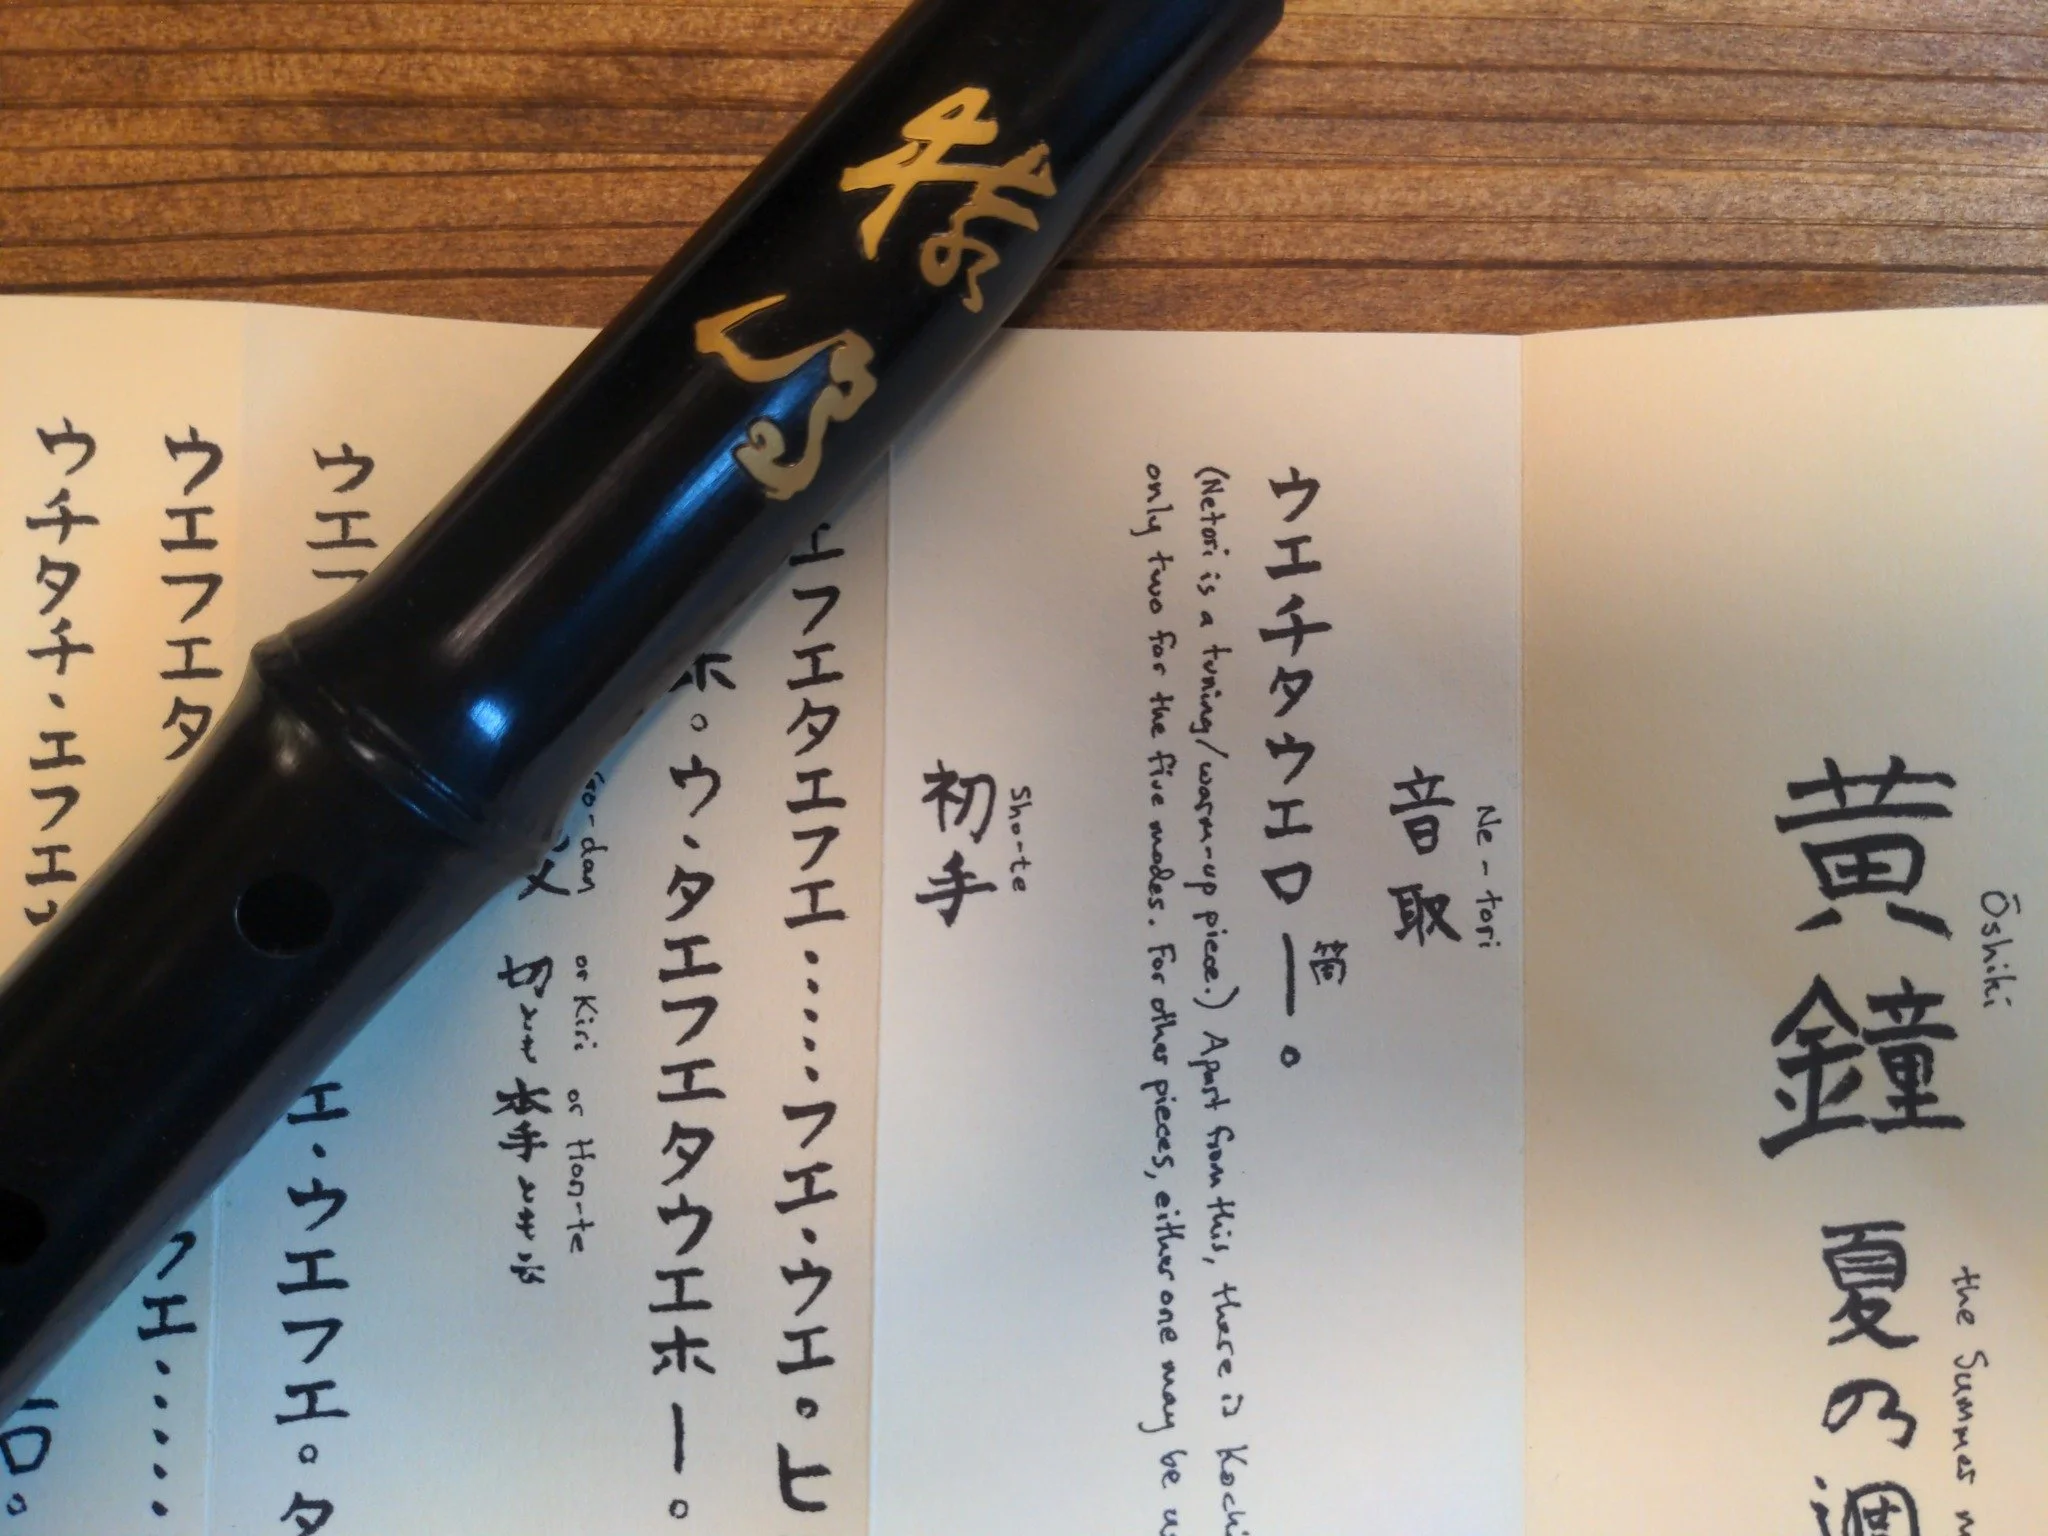 Ōshiki the Summer
黄鐘 夏の
Ne-tori
音取
ウエチタウエロー。
(Netori is a tuning/warm-up piece.) Apart from this, there is Kochi
only two for the five modes. For other pieces, either one may be
Sho-te
初手
エフエタエフエ・・・・・フエ・ウエ。上
ホ。ウ・タエフエタウエホー。
-dan or Kiri or Hon-te
切 本手
ウエ エ・ウエフエ。タ
ウエフエタ フエ・・・・・
ウチタチ・エフエ ロ。